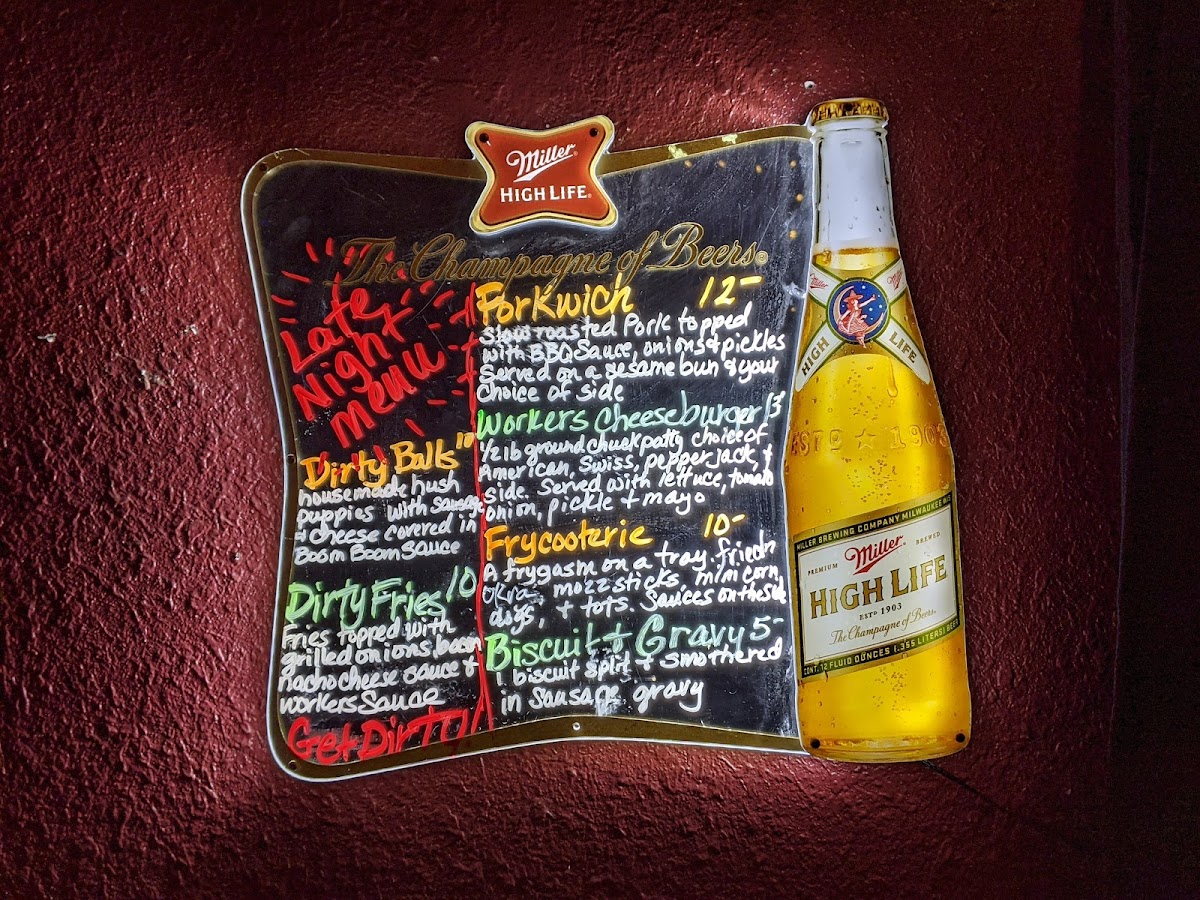 Miller
HIGH LIFE
The Champagne of Beers
Late
Night
Menu
Dirty Balls 10
housemade hush
puppies with sausage
+ cheese covered in
Boom Boom Sauce
Dirty Fries 10
Fries topped with
grilled onions, bacon
nacho cheese sauce +
workers Sauce
Get Dirty!
Porkwich 12-
Slow roasted Pork topped
with BBQ Sauce, onions & pickles
Served on a sesame bun & your
Choice of side
Workers Cheeseburger 13
1/2 lb ground chuck patty choice of
American, Swiss, pepperjack, +
Side. Served with lettuce, tomato
onion, pickle + mayo
Frycooterie 10-
A frygasm on a tray. fried
Okra, mozz sticks, mini corn
dogs, + tots. Sauces on the side
Biscuit + Gravy 5-
1 biscuit split + smothered
in Sausage gravy
Miller
HIGH LIFE
ESTD 1903
MILLER BREWING COMPANY MILWAUKEE
PREMIUM Miller BREWED
HIGH LIFE
ESTD 1903
The Champagne of Beers
CONT. 12 FLUID OUNCES (.355 LITERS) BEER